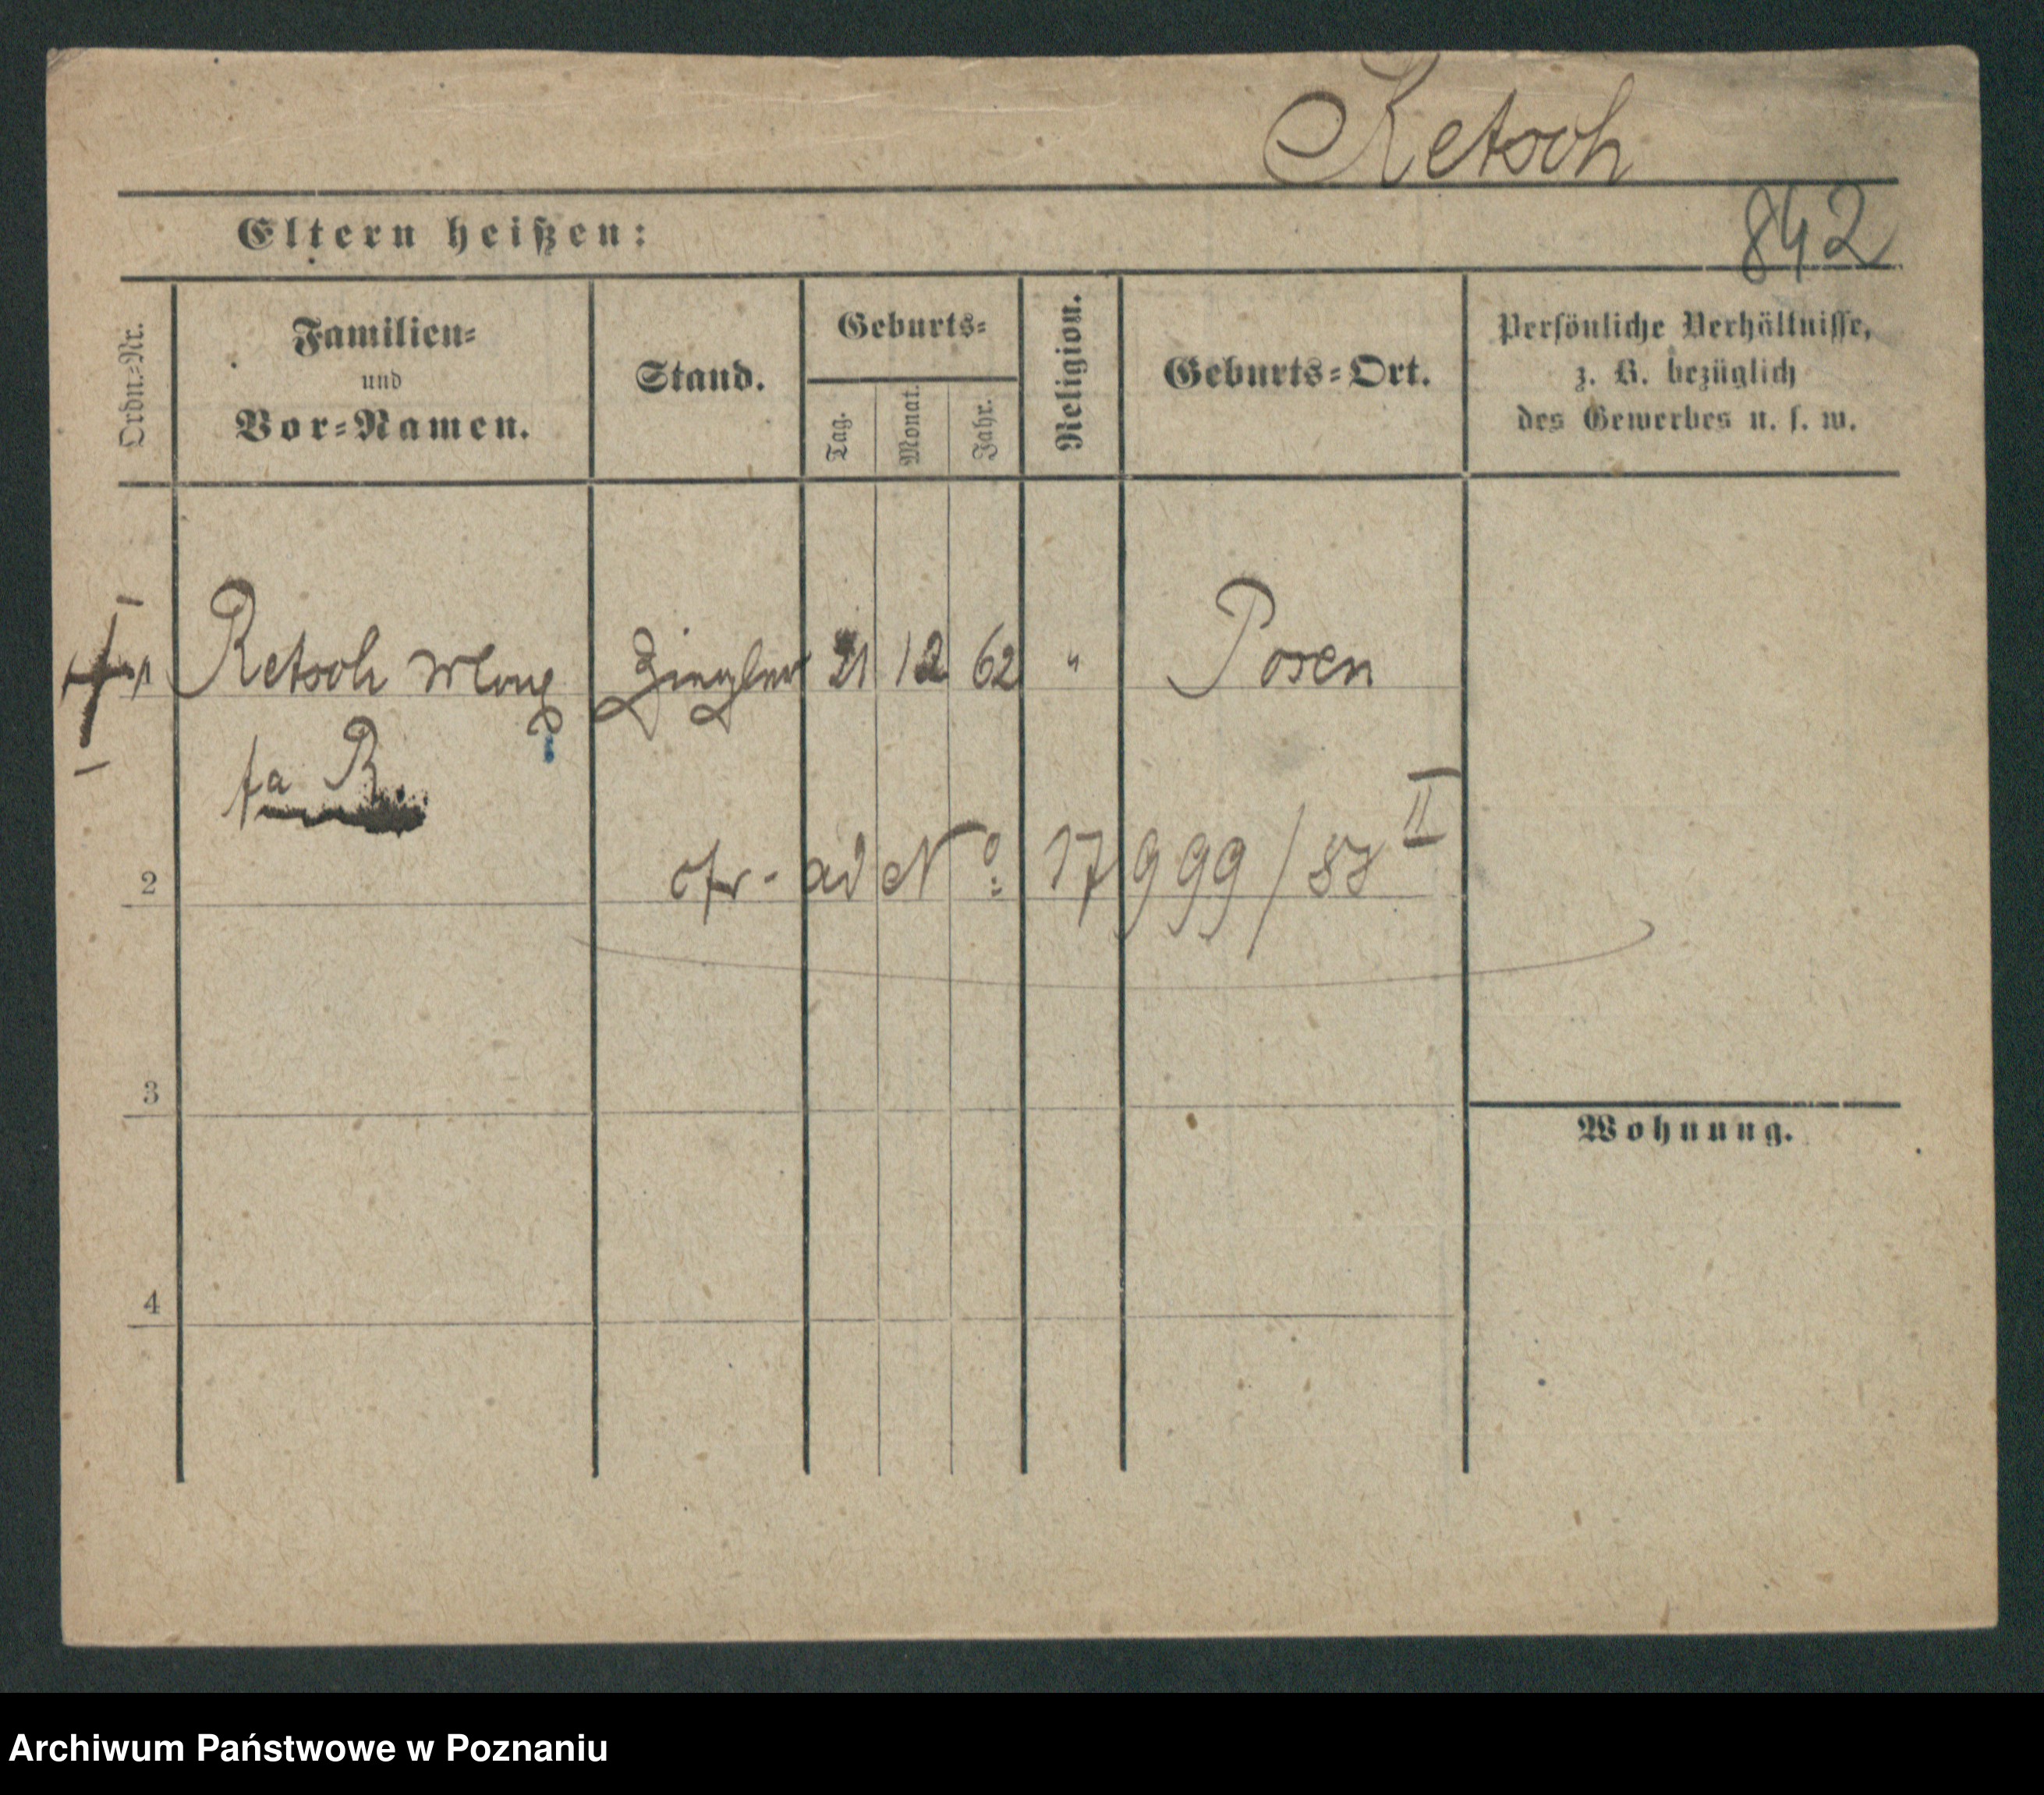 Retsch
842
Eltern heißen:
Ordn.-Nr.
Familien-
und
Vor-Namen.
Stand.
Geburts-
Tag.
Monat.
Jahr.
Religion.
Geburts-Ort.
Persönliche Verhältnisse,
z. B. bezüglich
des Gewerbes u. s. w.
1 Retsch 21 12 62 " Posen
2 ad No: 17999/88 II
3
Wohnung.
4
Archiwum Państwowe w Poznaniu